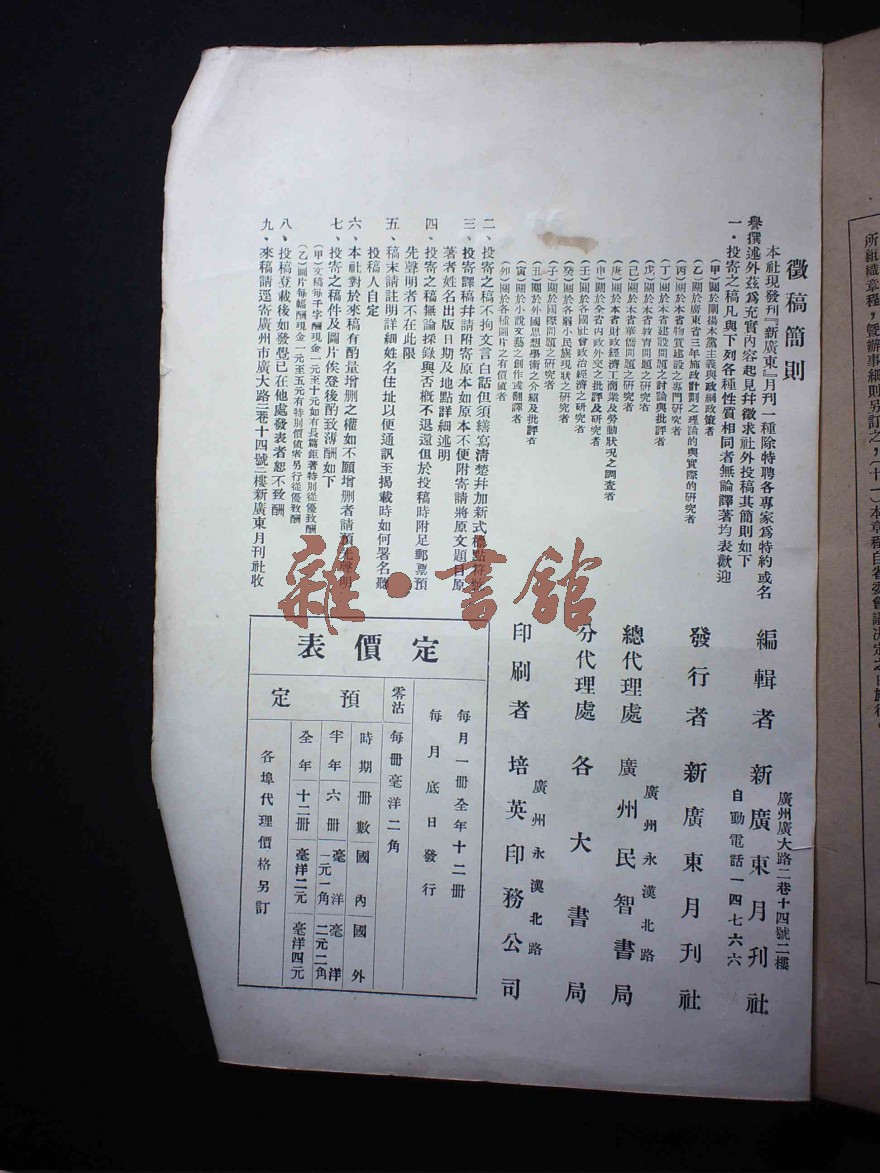 徵稿簡則
本社現發刊『新廣東』月刊一種除特聘各專家爲特約或名
譽撰述外茲爲充實內容起見幷徵求社外投稿其簡則如下
一．投寄之稿凡與下列各種性質相同者無論譯著均表歡迎
（甲）關於闡揚本黨主義與政綱政策者
（乙）關於廣東省三年施政計劃之理論的與實際的研究者
（丙）關於本省物質建設之專門研究者
（丁）關於本省建設問題之討論與批評者
（戊）關於本省教育問題之研究者
（己）關於本省華僑問題之研究者
（庚）關於本省財政經濟工商業及勞動狀況之調查者
（申）關於全省內政外交之批評及研究者
（壬）關於各國社會政治經濟之研究者
（癸）關於各弱小民族現狀之研究者
（子）關於國際問題之研究者
（丑）關於外國思想學術之介紹及批評者
（寅）關於小說文藝之創作或翻譯者
（卯）關於各種圖片之有價值者
二、投寄之稿不拘文言白話但須繕寫清楚幷加新式標點符號
三、投寄譯稿幷請附寄原本如原本不便附寄請將原文題目原
著者姓名出版日期及地點詳細述明
四、投寄之稿無論採錄與否概不退還但於投稿時附足郵票預
先聲明者不在此限
五、稿末請註明詳細姓名住址以便通訊至揭載時如何署名聽
投稿人自定
六、本社對於來稿有酌量增刪之權如不願增刪者請預先聲明
七、投寄之稿件及圖片俟登後酌致薄酬如下
（甲）文稿每千字酬現金一元至十元如有長篇鉅著特別從優致酬
（乙）圖片每幅酬現金一元至五元有特別價值者另行從優致酬
八、投稿登載後如發覺已在他處發表者恕不致酬
九、來稿請逕寄廣州市廣大路二巷十四號二樓新廣東月刊社收
廣州廣大路二巷十四號二樓
編輯者 新廣東月刊社
自動電話一四七六六
發行者 新廣東月刊社
廣州永漢北路
總代理處 廣州民智書局
分代理處 各大書局
廣州永漢北路
印刷者 培英印務公司
定價表
每月一冊全年十二冊
每月底日發行
零沽 每冊毫洋二角
預定
時期 冊數 國內 國外
半年 六冊 毫洋一元一角 毫洋二元二角
全年 十二冊 毫洋二元 毫洋四元
各埠代理價格另訂
雜·書館
所組織章程，暨辦事細則另訂之，（十一）本章程自省委會議決定之日施行。